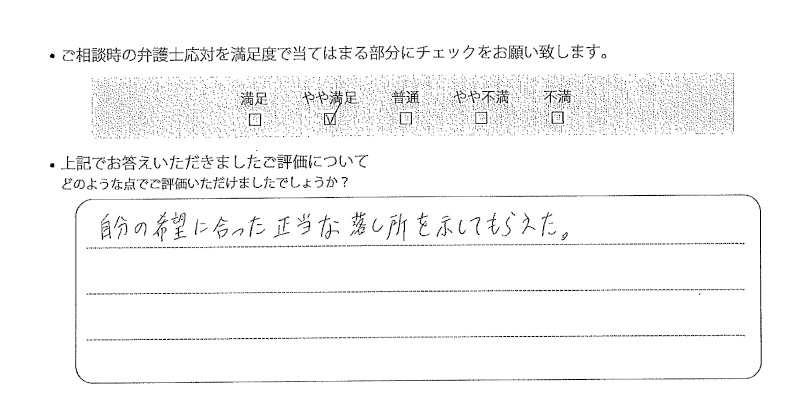 ・ご相談時の弁護士応対を満足度で当てはまる部分にチェックをお願い致します。
満足 やや満足 普通 やや不満 不満
□ ☑ □ □ □
・上記でお答えいただきましたご評価について
どのような点でご評価いただけましたでしょうか？
自分の希望に合った正当な落し所を示してもらえた。